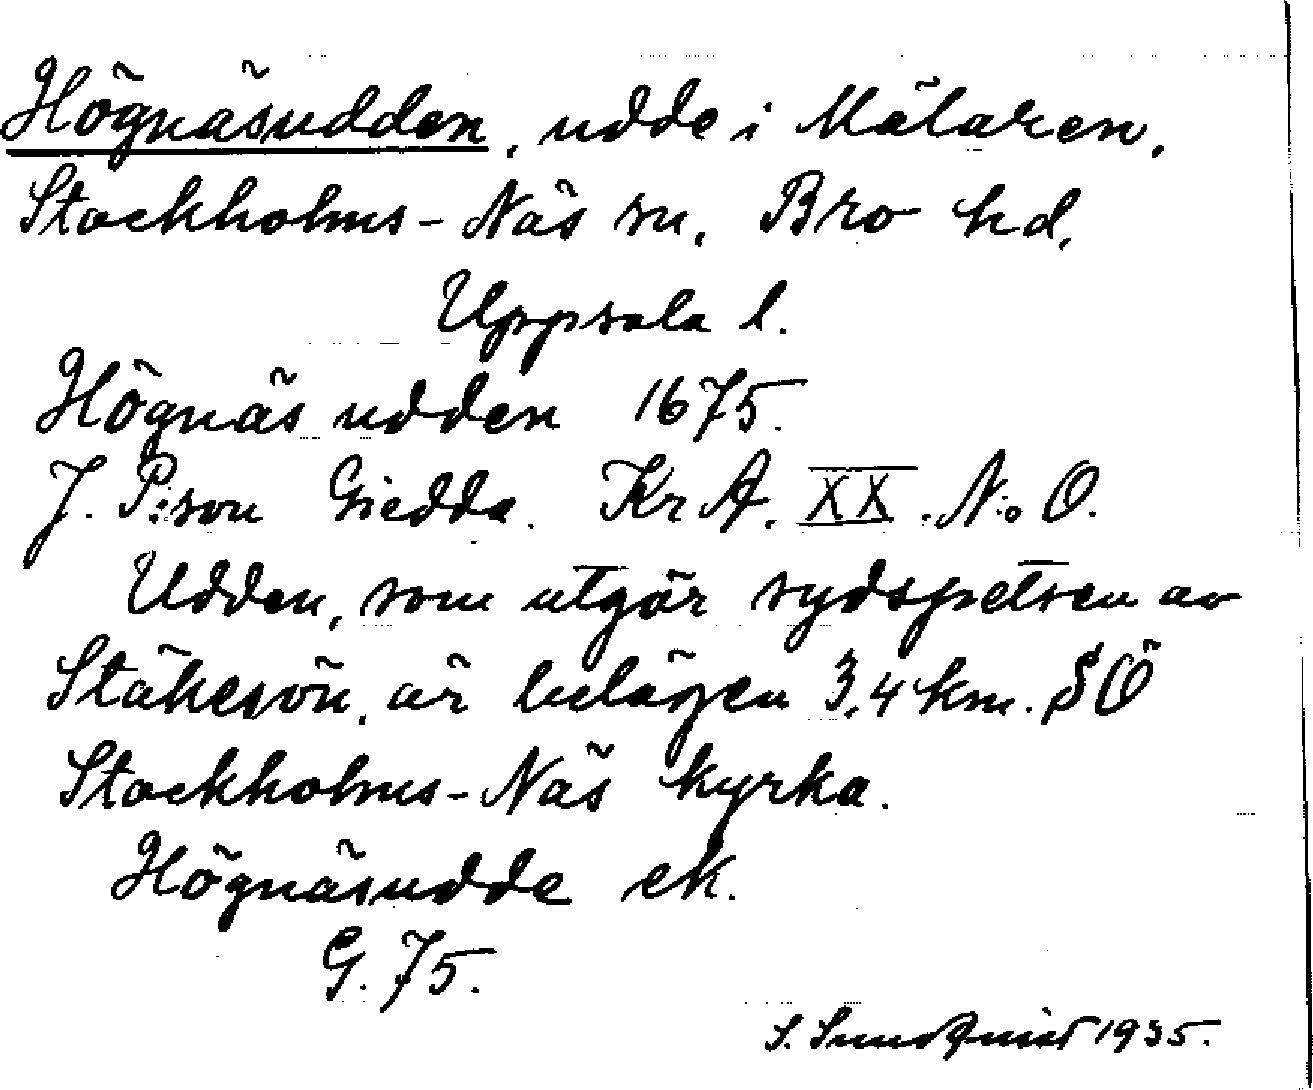 Högnäsudden, udde i Mälaren,
Stockholms-Näs sn, Bro hd,
Uppsala l.
Högnäs udden 1675.
J. P:son Giedda. Kr A. XX. N:o O.
Udden, som utgör sydspetsen av
Stäkesön, är belägen 3,4 km. SÖ
Stockholms-Näs kyrka.
Högnäsudde ek.
G. 75.
S. Sundquist 1935.